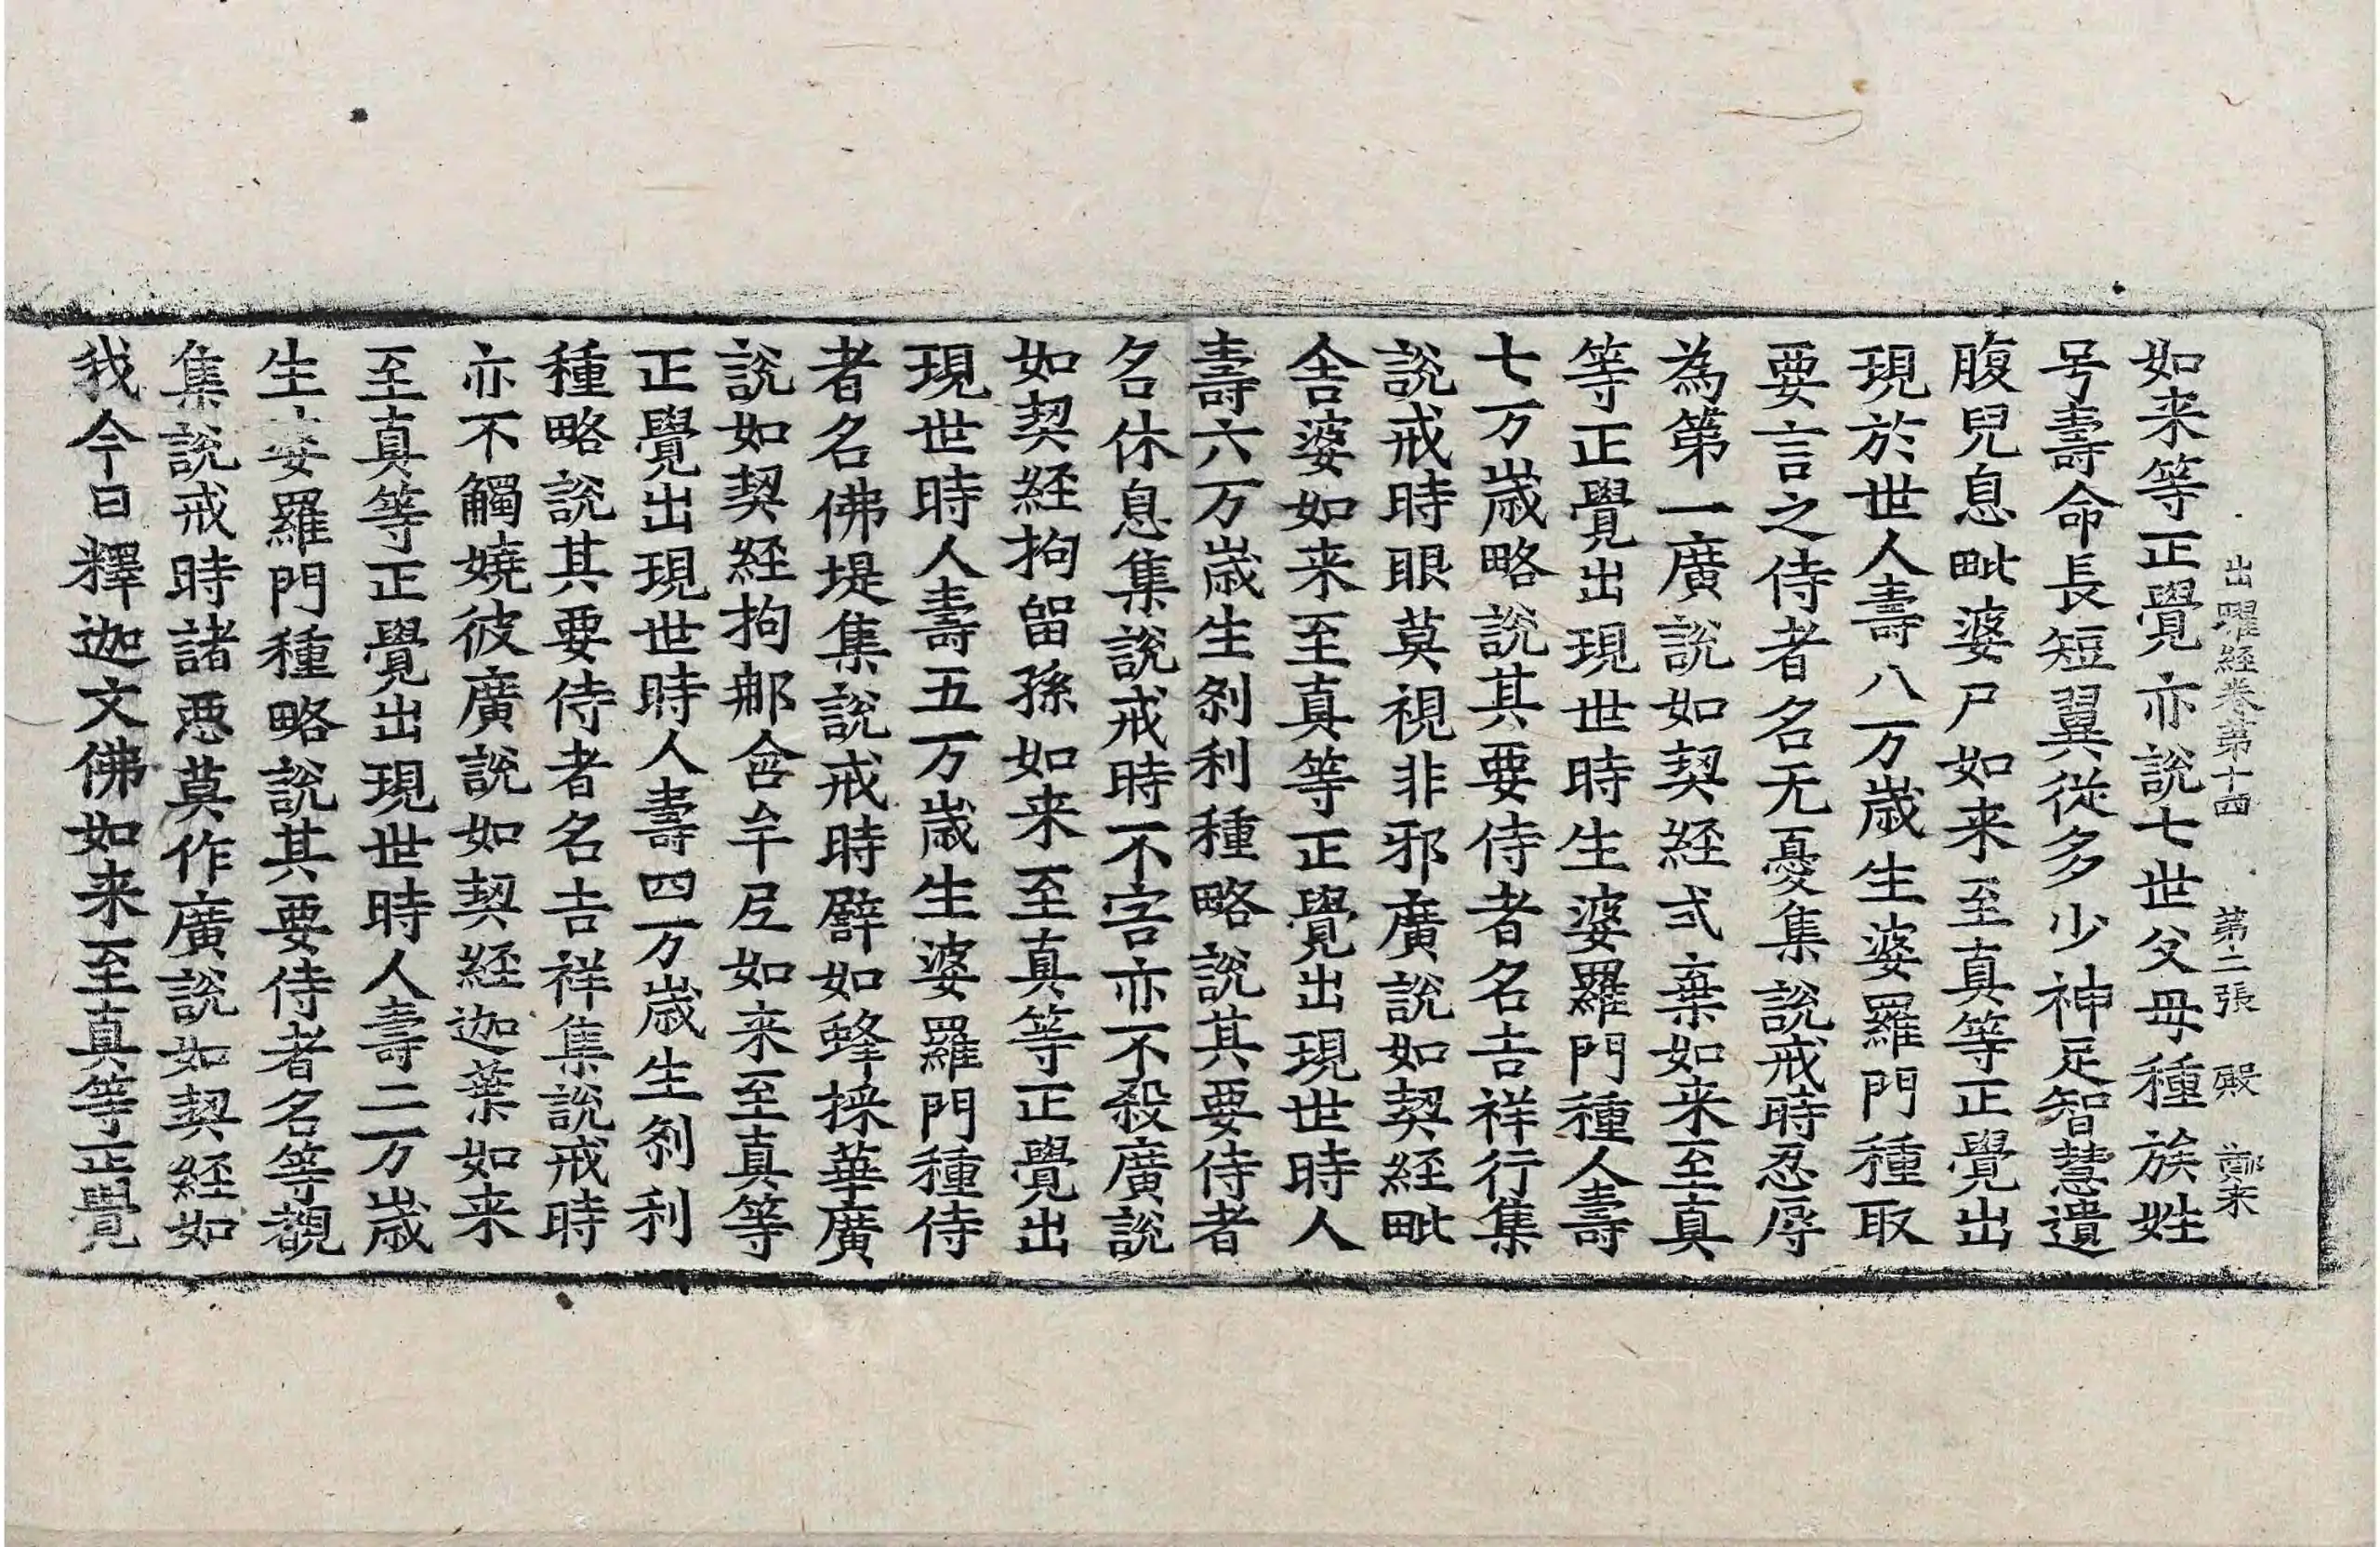 出曜経卷第十四　第二張　殿　鄭来
如来等正覺亦說七世父母種族姓
号壽命長短翼從多少神足智慧遺
腹兒息毗婆尸如来至真等正覺出
現於世人壽八万歲生婆羅門種取
要言之侍者名无憂集說戒時忍辱
為第一廣說如契経式棄如来至真
等正覺出現世時生婆羅門種人壽
七万歲略說其要侍者名吉祥行集
說戒時眼莫視非邪廣說如契経毗
舍婆如来至真等正覺出現世時人
壽六万歲生刹利種略說其要侍者
名休息集說戒時不害亦不殺廣說
如契経拘留孫如来至真等正覺出
現世時人壽五万歲生婆羅門種侍
者名佛堤集說戒時譬如蜂採華廣
說如契経拘那含牟尼如来至真等
正覺出現世時人壽四万歲生刹利
種略說其要侍者名吉祥集說戒時
亦不觸嬈彼廣說如契経迦葉如来
至真等正覺出現世時人壽二万歲
生婆羅門種略說其要侍者名等覩
集說戒時諸惡莫作廣說如契経如
我今日釋迦文佛如来至真等正覺